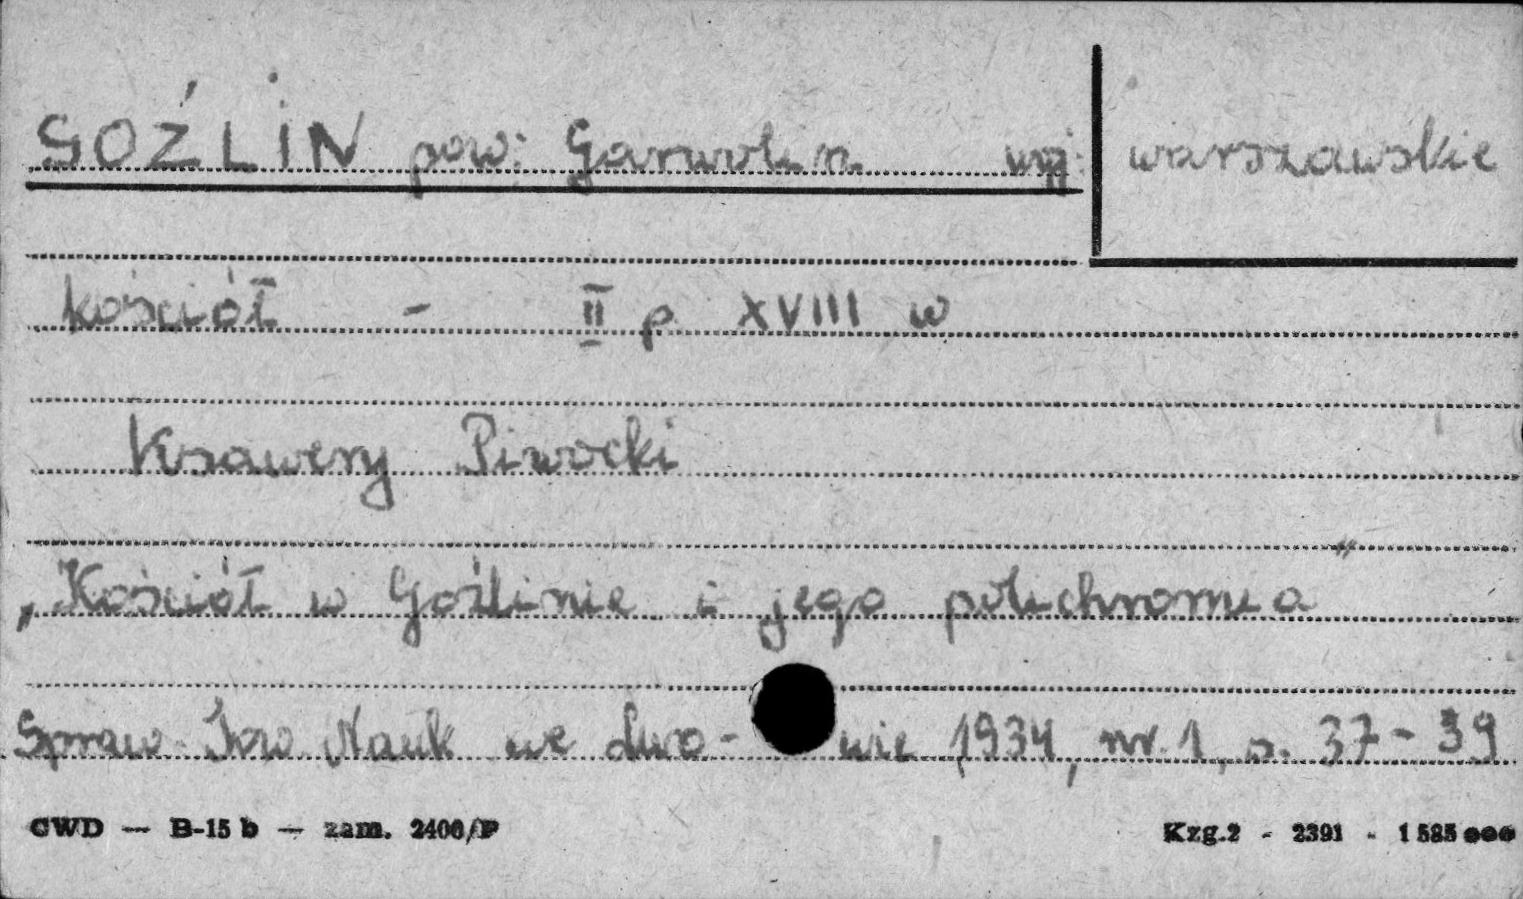 GOŹLIN pow: Garwolin woj: warszawskie
kościół - II p. XVIII w
Ksawery Piwocki
„Kościół w Goźlinie i jego polichromia”
Spraw. Tow. Nauk we Lwo- wie 1934, nr. 1, s. 37-39
CWD — B-15 b — zam. 2406/P
Kzg.2 - 2391 - 1 585 000